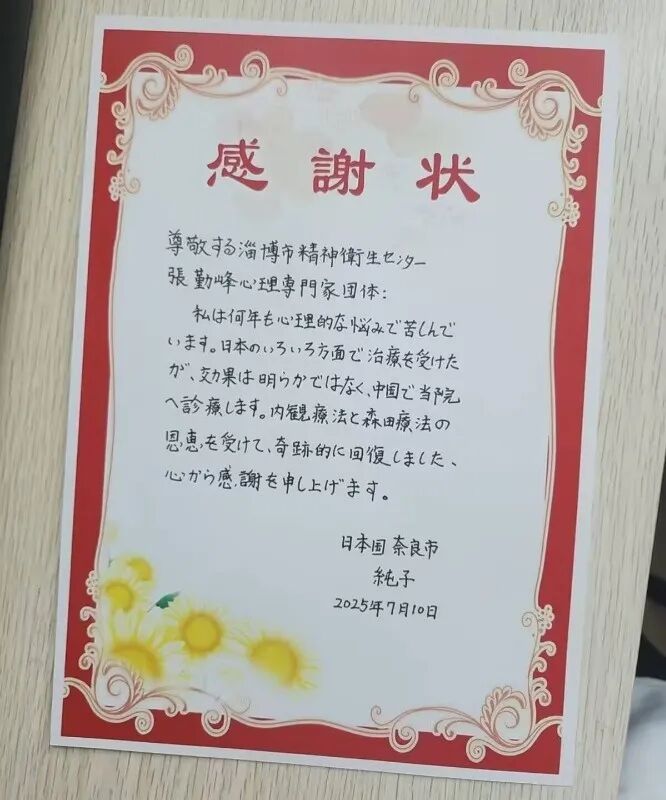 感謝状
尊敬する淄博市精神衛生センター
張勤峰心理専門家団体：
私は何年も心理的な悩みで苦しんで
います。日本のいろいろ方面で治療を受けた
が、効果は明らかではなく、中国で当院
へ診療します。内観療法と森田療法の
恩恵を受けて、奇跡的に回復しました、
心から感謝を申し上げます。
日本国 奈良市
純子
2025年7月10日